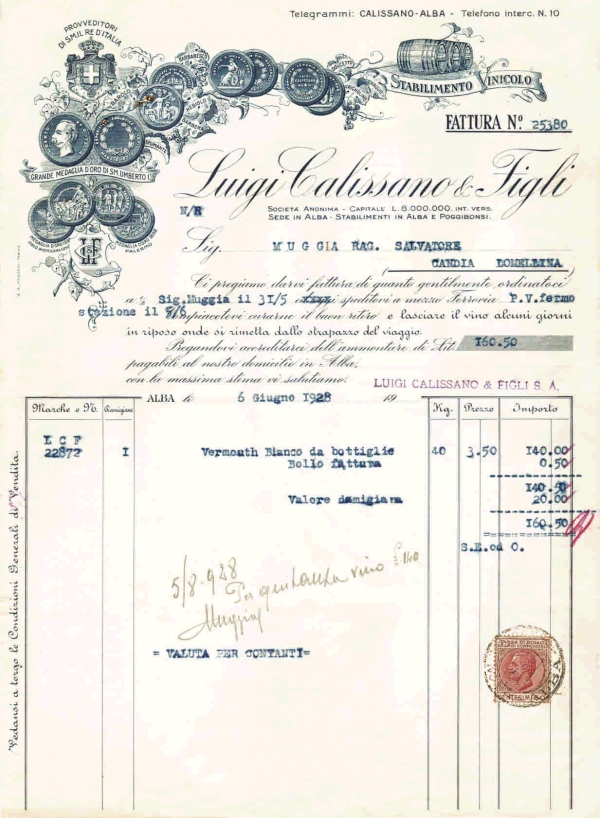 Telegrammi: CALISSANO-ALBA - Telefono interc. N. 10
PROVVEDITORI
DI S.M. IL RE D'ITALIA
BARBARESCO
STABILIMENTO VINICOLO
FATTURA No. 25380
GRANDE MEDAGLIA D'ORO DI S.M. UMBERTO I
Luigi Calissano & Figli
SOCIETÀ ANONIMA - CAPITALE L. 8.000.000. INT. VERS.
SEDE IN ALBA - STABILIMENTI IN ALBA E POGGIBONSI.
PALERMO
N/R
Sig. MUGGIA RAG. SALVATORE
CANDIA LOMELLINA
Ci pregiamo darvi fattura di quanto gentilmente ordinatoci
a Sig.Muggia il 31/5 speditovi a mezzo Ferrovia P.V.fermo
stazione il 5/6 Compiacetevi curarne il buon ritiro e lasciare il vino alcuni giorni
in riposo onde si rimetta dallo strapazzo del viaggio.
Pregandovi accreditarci dell'ammontare di Lit. 160.50
pagabili al nostro domicilio in Alba,
con la massima stima vi salutiamo.
LUIGI CALISSANO & FIGLI S. A.
ALBA li 6 Giugno 1928 19
Marche e N. Damigiane Kg. Prezzo Importo
L C F
22872 I Vermouth Bianco da bottiglie 40 3.50 140.00
Bollo fattura 0.50
140.50
Valore damigiana 20.00
160.50
S.E.od O.
5/8.928
Per quietanza vino £ 140
Muggia
= VALUTA PER CONTANTI=
TASSA DI BOLLO
CENTESIMI 50
ALBA
Vedansi a tergo le Condizioni Generali di Vendita.